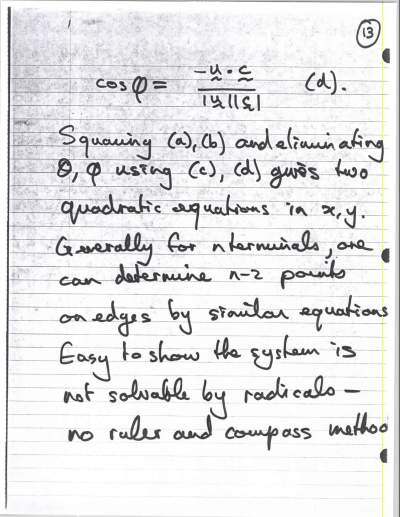 13
cos φ = -u · c / |u||c| (d).
Squaring (a), (b) and eliminating
θ, φ using (c), (d) gives two
quadratic equations in x, y.
Generally for n terminals, one
can determine n-2 points
on edges by similar equations
Easy to show the system is
not solvable by radicals –
no ruler and compass method